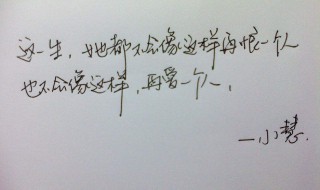 这一生，她都不会像这样再恨一个人
也不会像这样，再爱一个人，
一小慧.